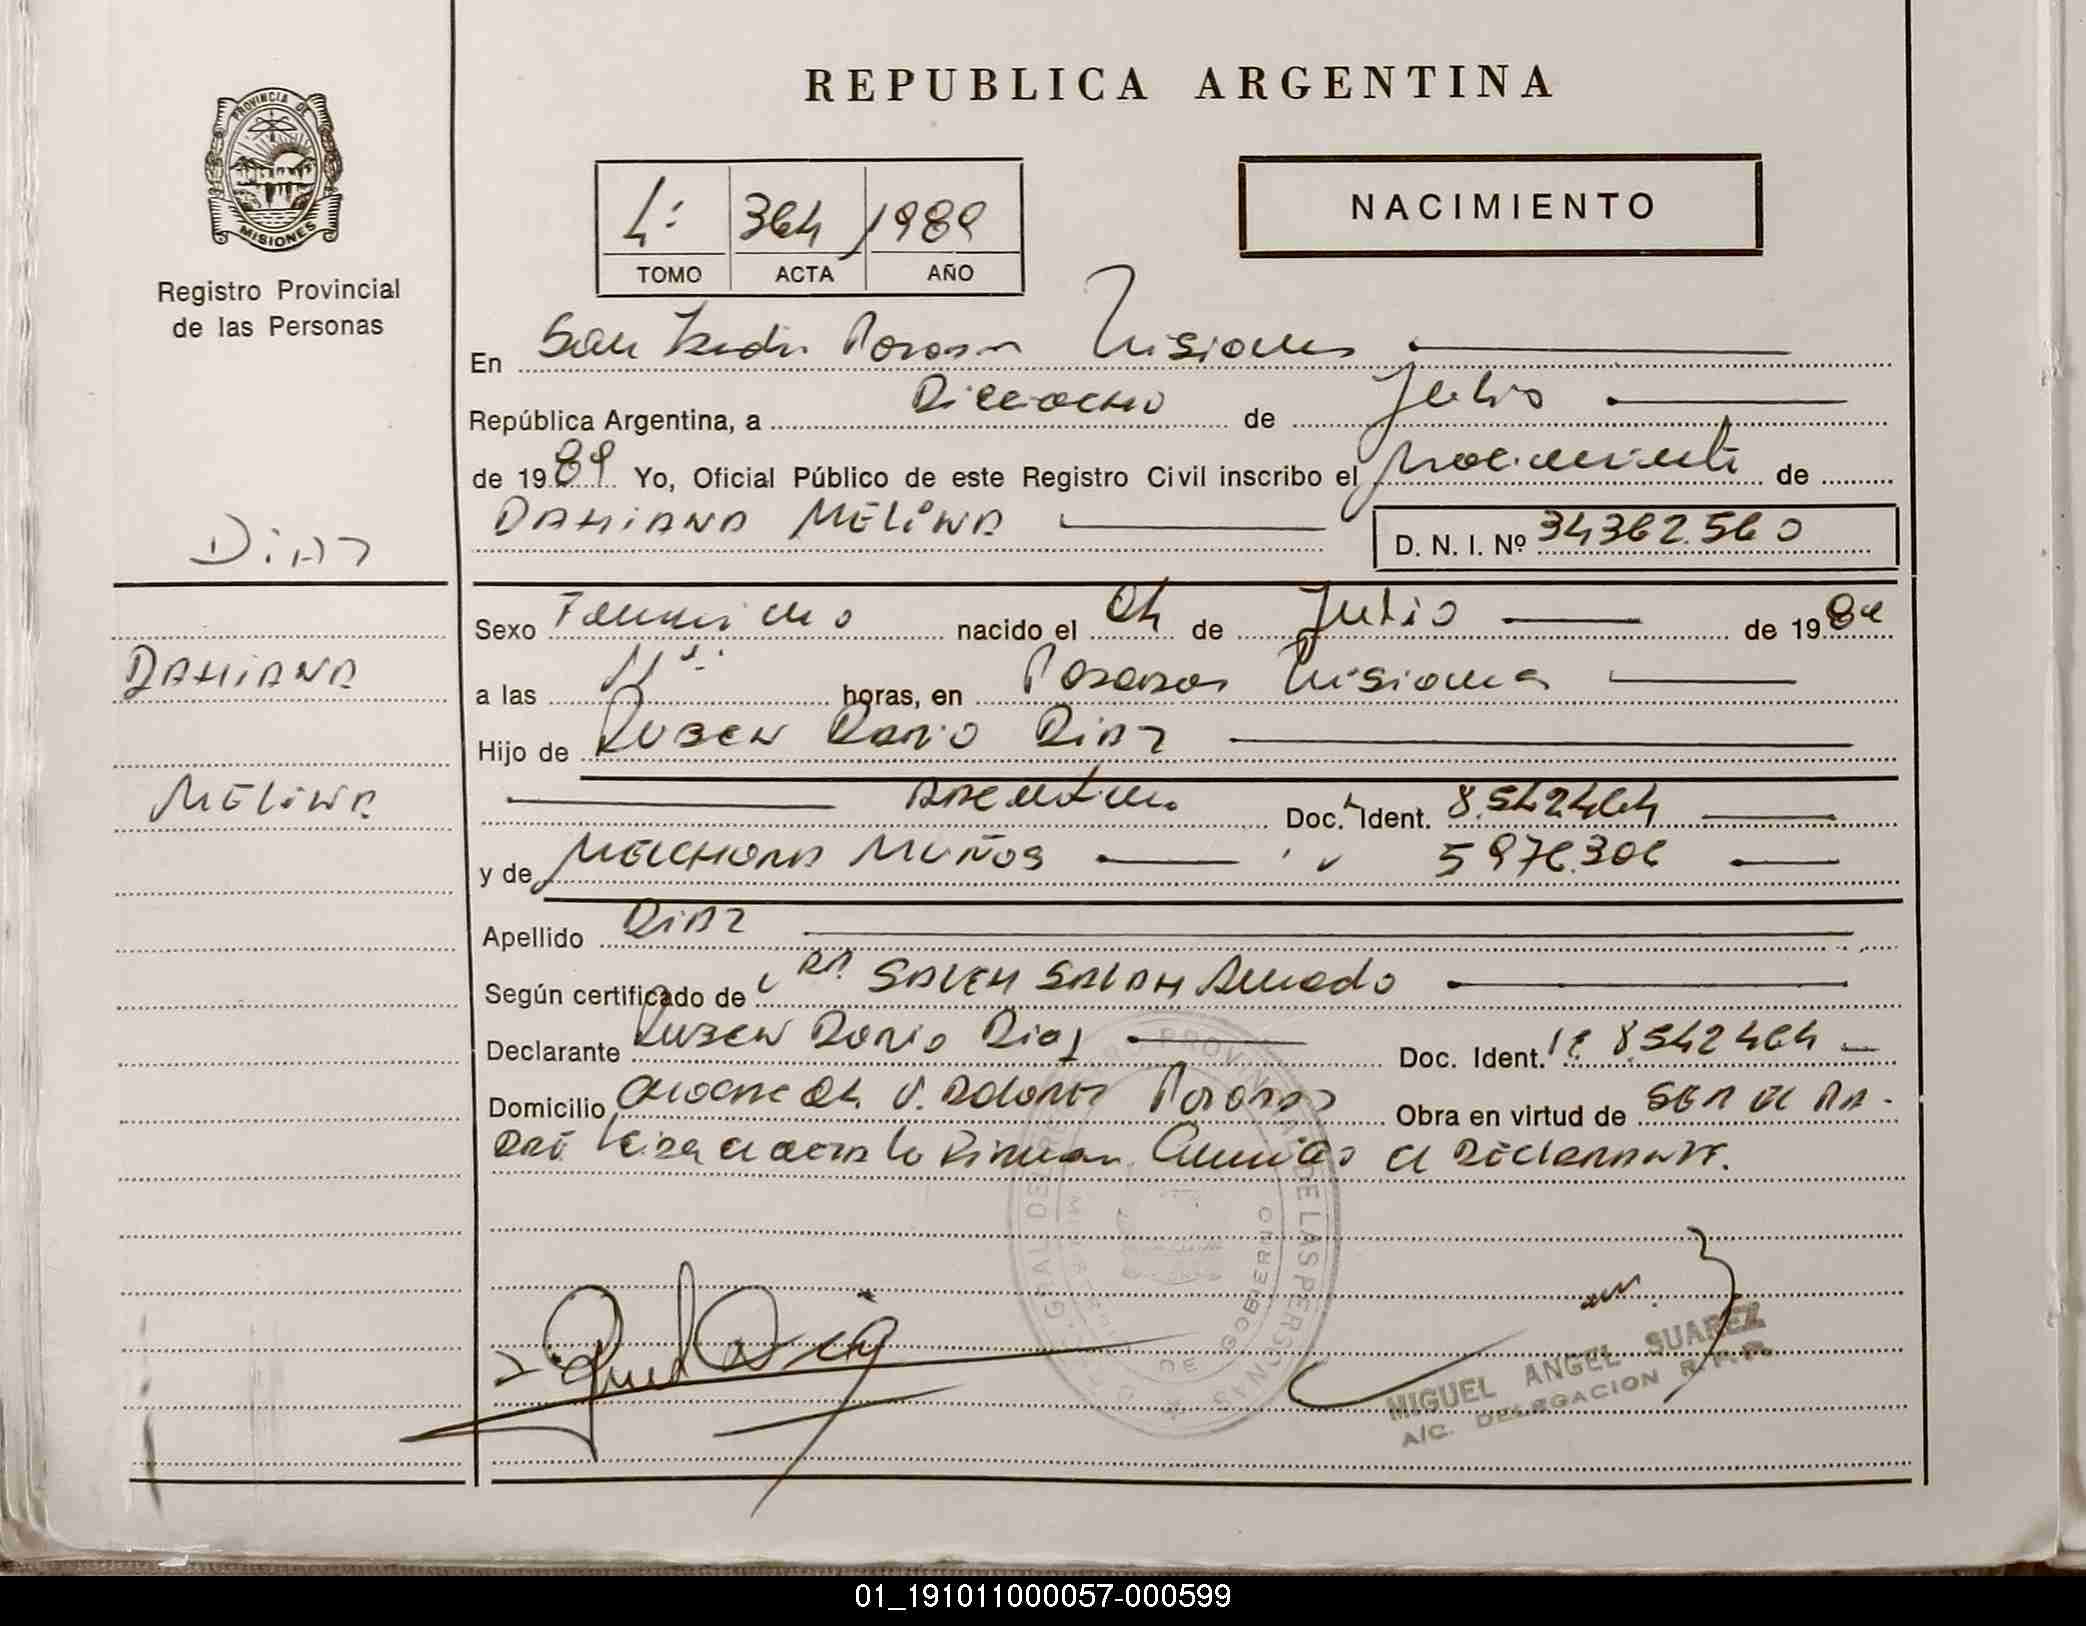 REPUBLICA ARGENTINA
PROVINCIA DE
MISIONES
Registro Provincial
de las Personas
NACIMIENTO
1º 364 1989
TOMO ACTA AÑO
En San Isidro Posadas Misiones
República Argentina, a Dieciocho de Julio
de 1989 Yo, Oficial Público de este Registro Civil inscribo el nacimiento de
DAMIANA MELINA D. N. I. Nº 34362.560
DIAZ
Sexo Femenino nacido el 04 de Julio de 1989
DAMIANA
a las 11 horas, en Posadas Misiones
Hijo de RUBEN Dario DIAZ
MELINA
Argentino Doc. Ident. 8.542464
y de MELCHORA MUÑOS 5976.306
Apellido DIAZ
Según certificado de SALEM SALAH Amado
Declarante RUBEN Dario Diaz Doc. Ident. 8.542464
Domicilio V. Dolores Posadas Obra en virtud de SER EL PA-
DRE Leida el acta la Firman Conmigo el Declarante.
DCC. GRAL DE REGISTRO PROVINCIAL DE LAS PERSONAS
DE GOBIERNO
MIGUEL ANGEL SUAREZ
A/C. DELEGACION R.P.P.
01_191011000057-000599